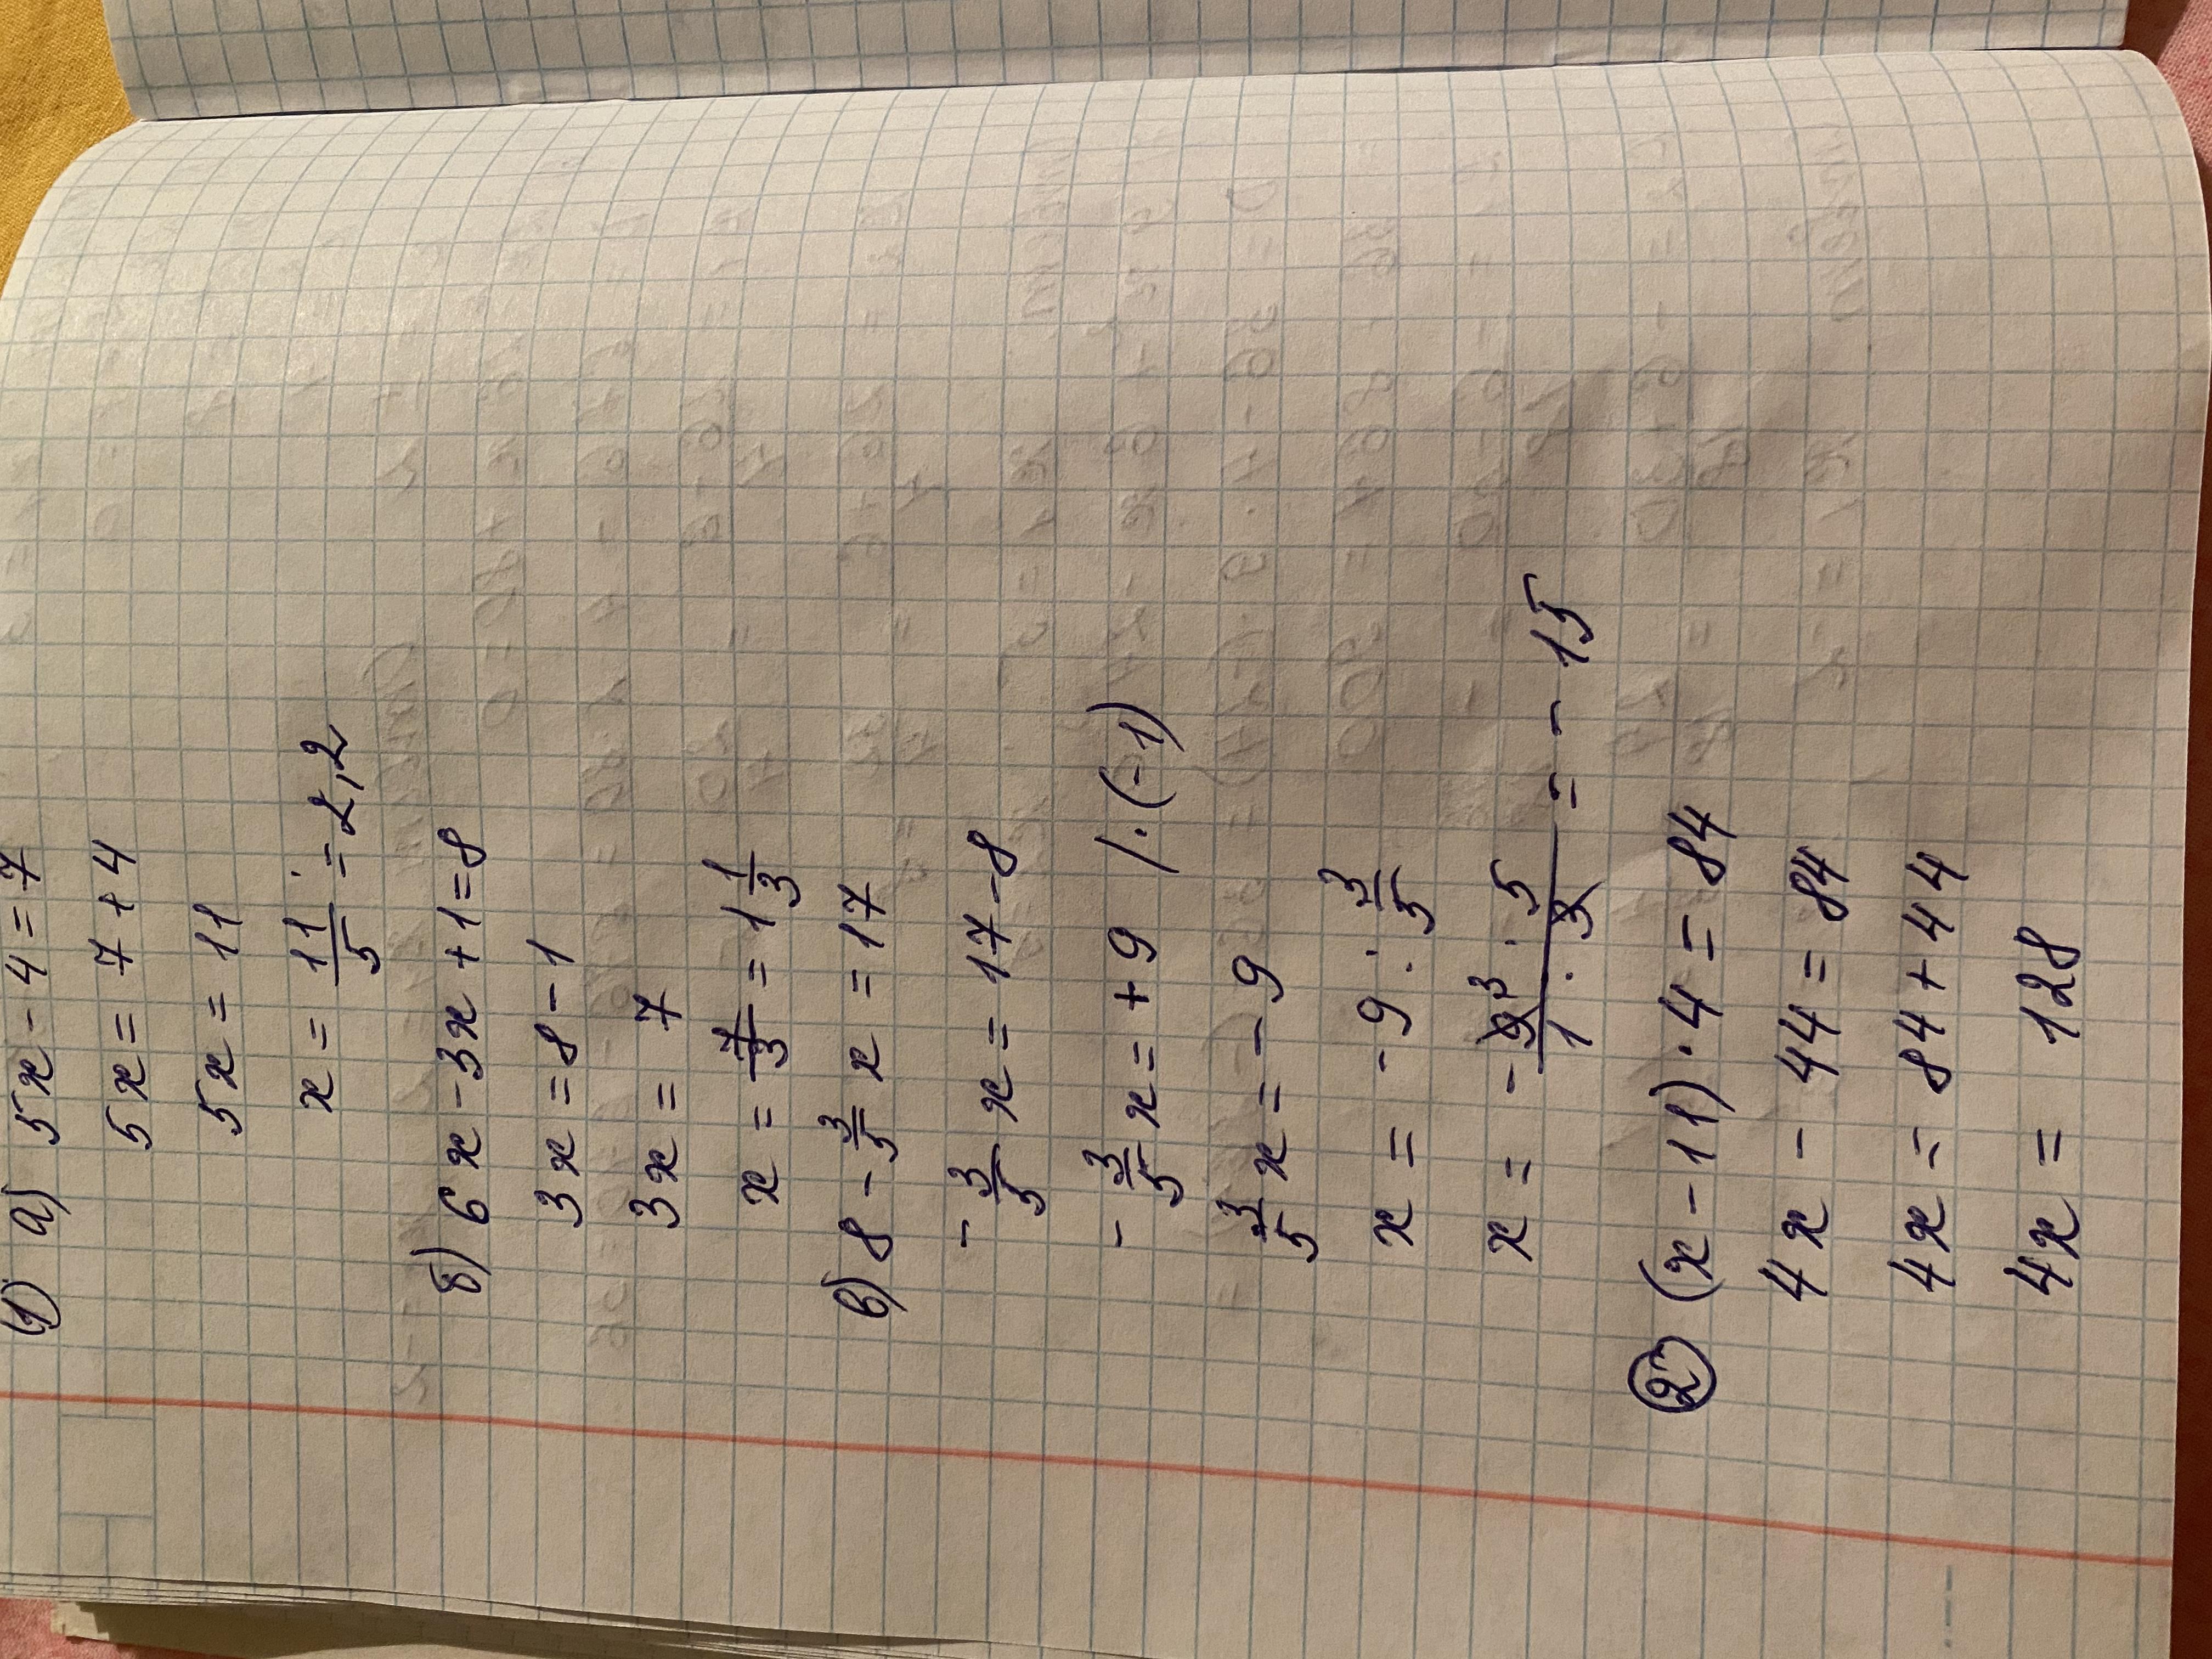 1) а) 5x - 4 = 7
5x = 7 + 4
5x = 11
x = 11/5 = 2,2
б) 6x - 3x + 1 = 8
3x = 8 - 1
3x = 7
x = 7/3 = 1 1/3
в) 8 - 3/5 x = 17
- 3/5 x = 17 - 8
- 3/5 x = + 9 / · (-1)
3/5 x = - 9
x = - 9 : 3/5
x = - 9 3 · 5 / 1 · 3 = - 15
2 (x - 11) · 4 = 84
4x - 44 = 84
4x = 84 + 44
4x = 128